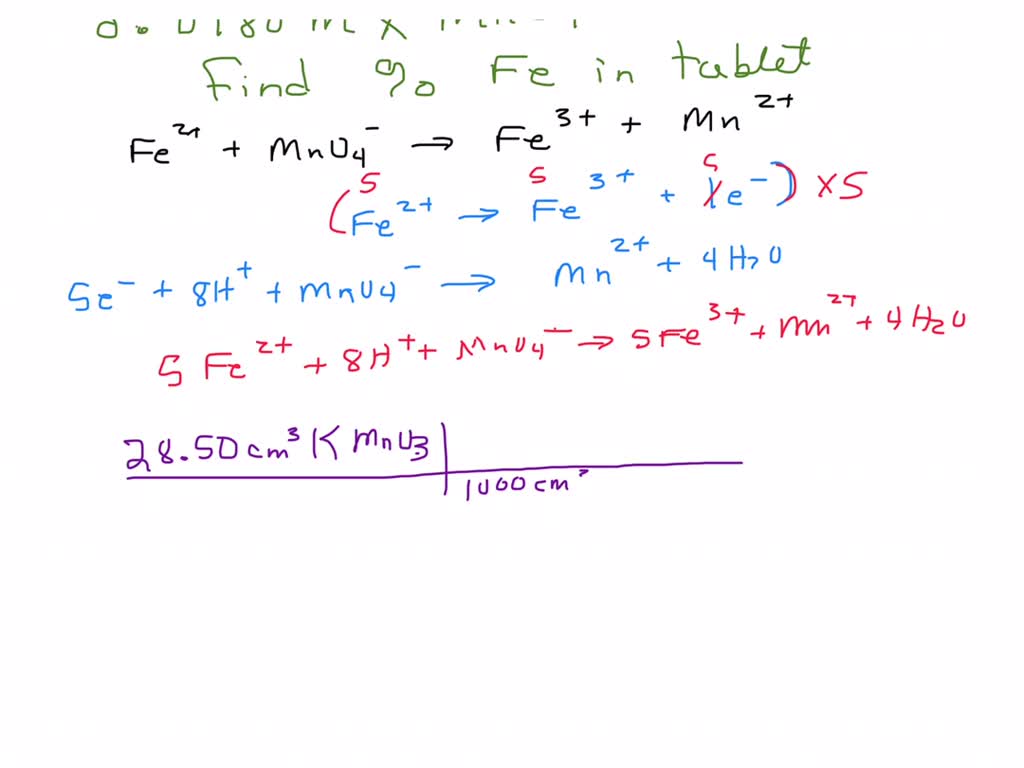 Find % Fe in tablet
Fe²⁺ + MnO₄⁻ → Fe³⁺ + Mn²⁺
5 5 5
(Fe²⁺ → Fe³⁺ + 1e⁻) x5
5e⁻ + 8H⁺ + MnO₄⁻ → Mn²⁺ + 4H₂O
5Fe²⁺ + 8H⁺ + MnO₄⁻ → 5Fe³⁺ + Mn²⁺ + 4H₂O
28.50cm³ KMnO3
1000cm³